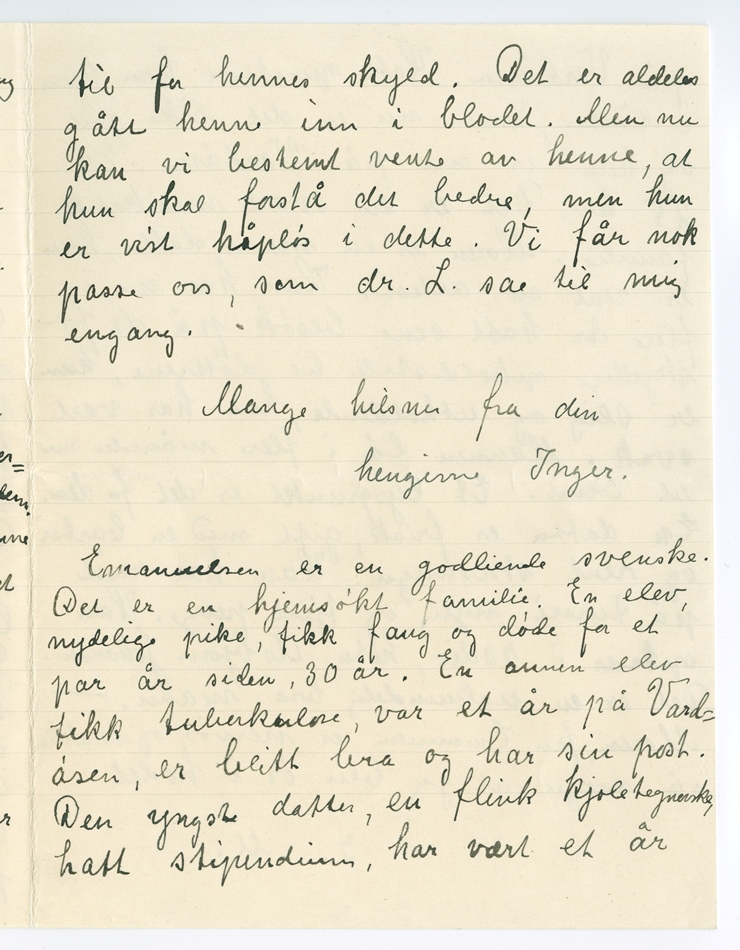 til for hennes skyld. Det er aldeles
gått henne inn i blodet. Men nu
kan vi bestemt vente av henne, at
hun skal forstå det bedre, men hun
er visst håpløs i dette. Vi får nok
passe oss, som dr. L. sae til mig
engang.
Mange hilsner fra din
hengivne Inger.
Emanuelsen er en godlidende svenske.
Det er en hjemsøkt familie. En elev,
nydelig pike, fikk fang og døde for et
par år siden, 30 år. En annen elev
fikk tuberkulose, var et år på Vard=
åsen, er blitt bra og har sin post.
Den yngste datter, en flink kjoletegnerske,
hatt stipendium, har vært et år